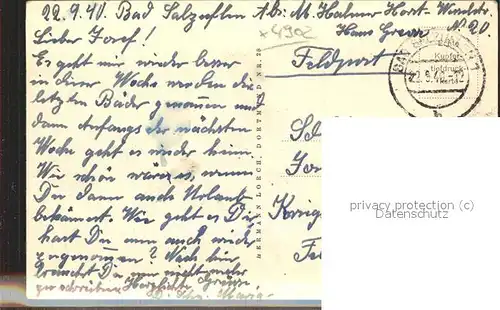 22.9.40. Bad Salzuflen Abs. M. Hahner Horst-Wesselstr.
Hans Grewe N. 20
*4902
Lieber Josef!
Feldpost
Es geht mir wieder besser
in dieser Woche werden die
letzten Bäder genommen und
dann Anfangs der nächsten
Woche geht es wieder heim.
Wie schön wäre es, wenn
Du dann auch Urlaub
bekämest. Wie geht es Dir,
hast Du nun auch wieder
? Nach hier
brauchst Du nun nicht mehr
zu schreiben Herzlichste Grüsse
Maria
HERMANN LORCH, DORTMUND NR. 20
BAD SALZUFLEN
Kupfer-
tiefdruck-
karte
22.9.40.-12
b
Sch
Jo
Krieg
Fe
privacy protection (c)
Datenschutz